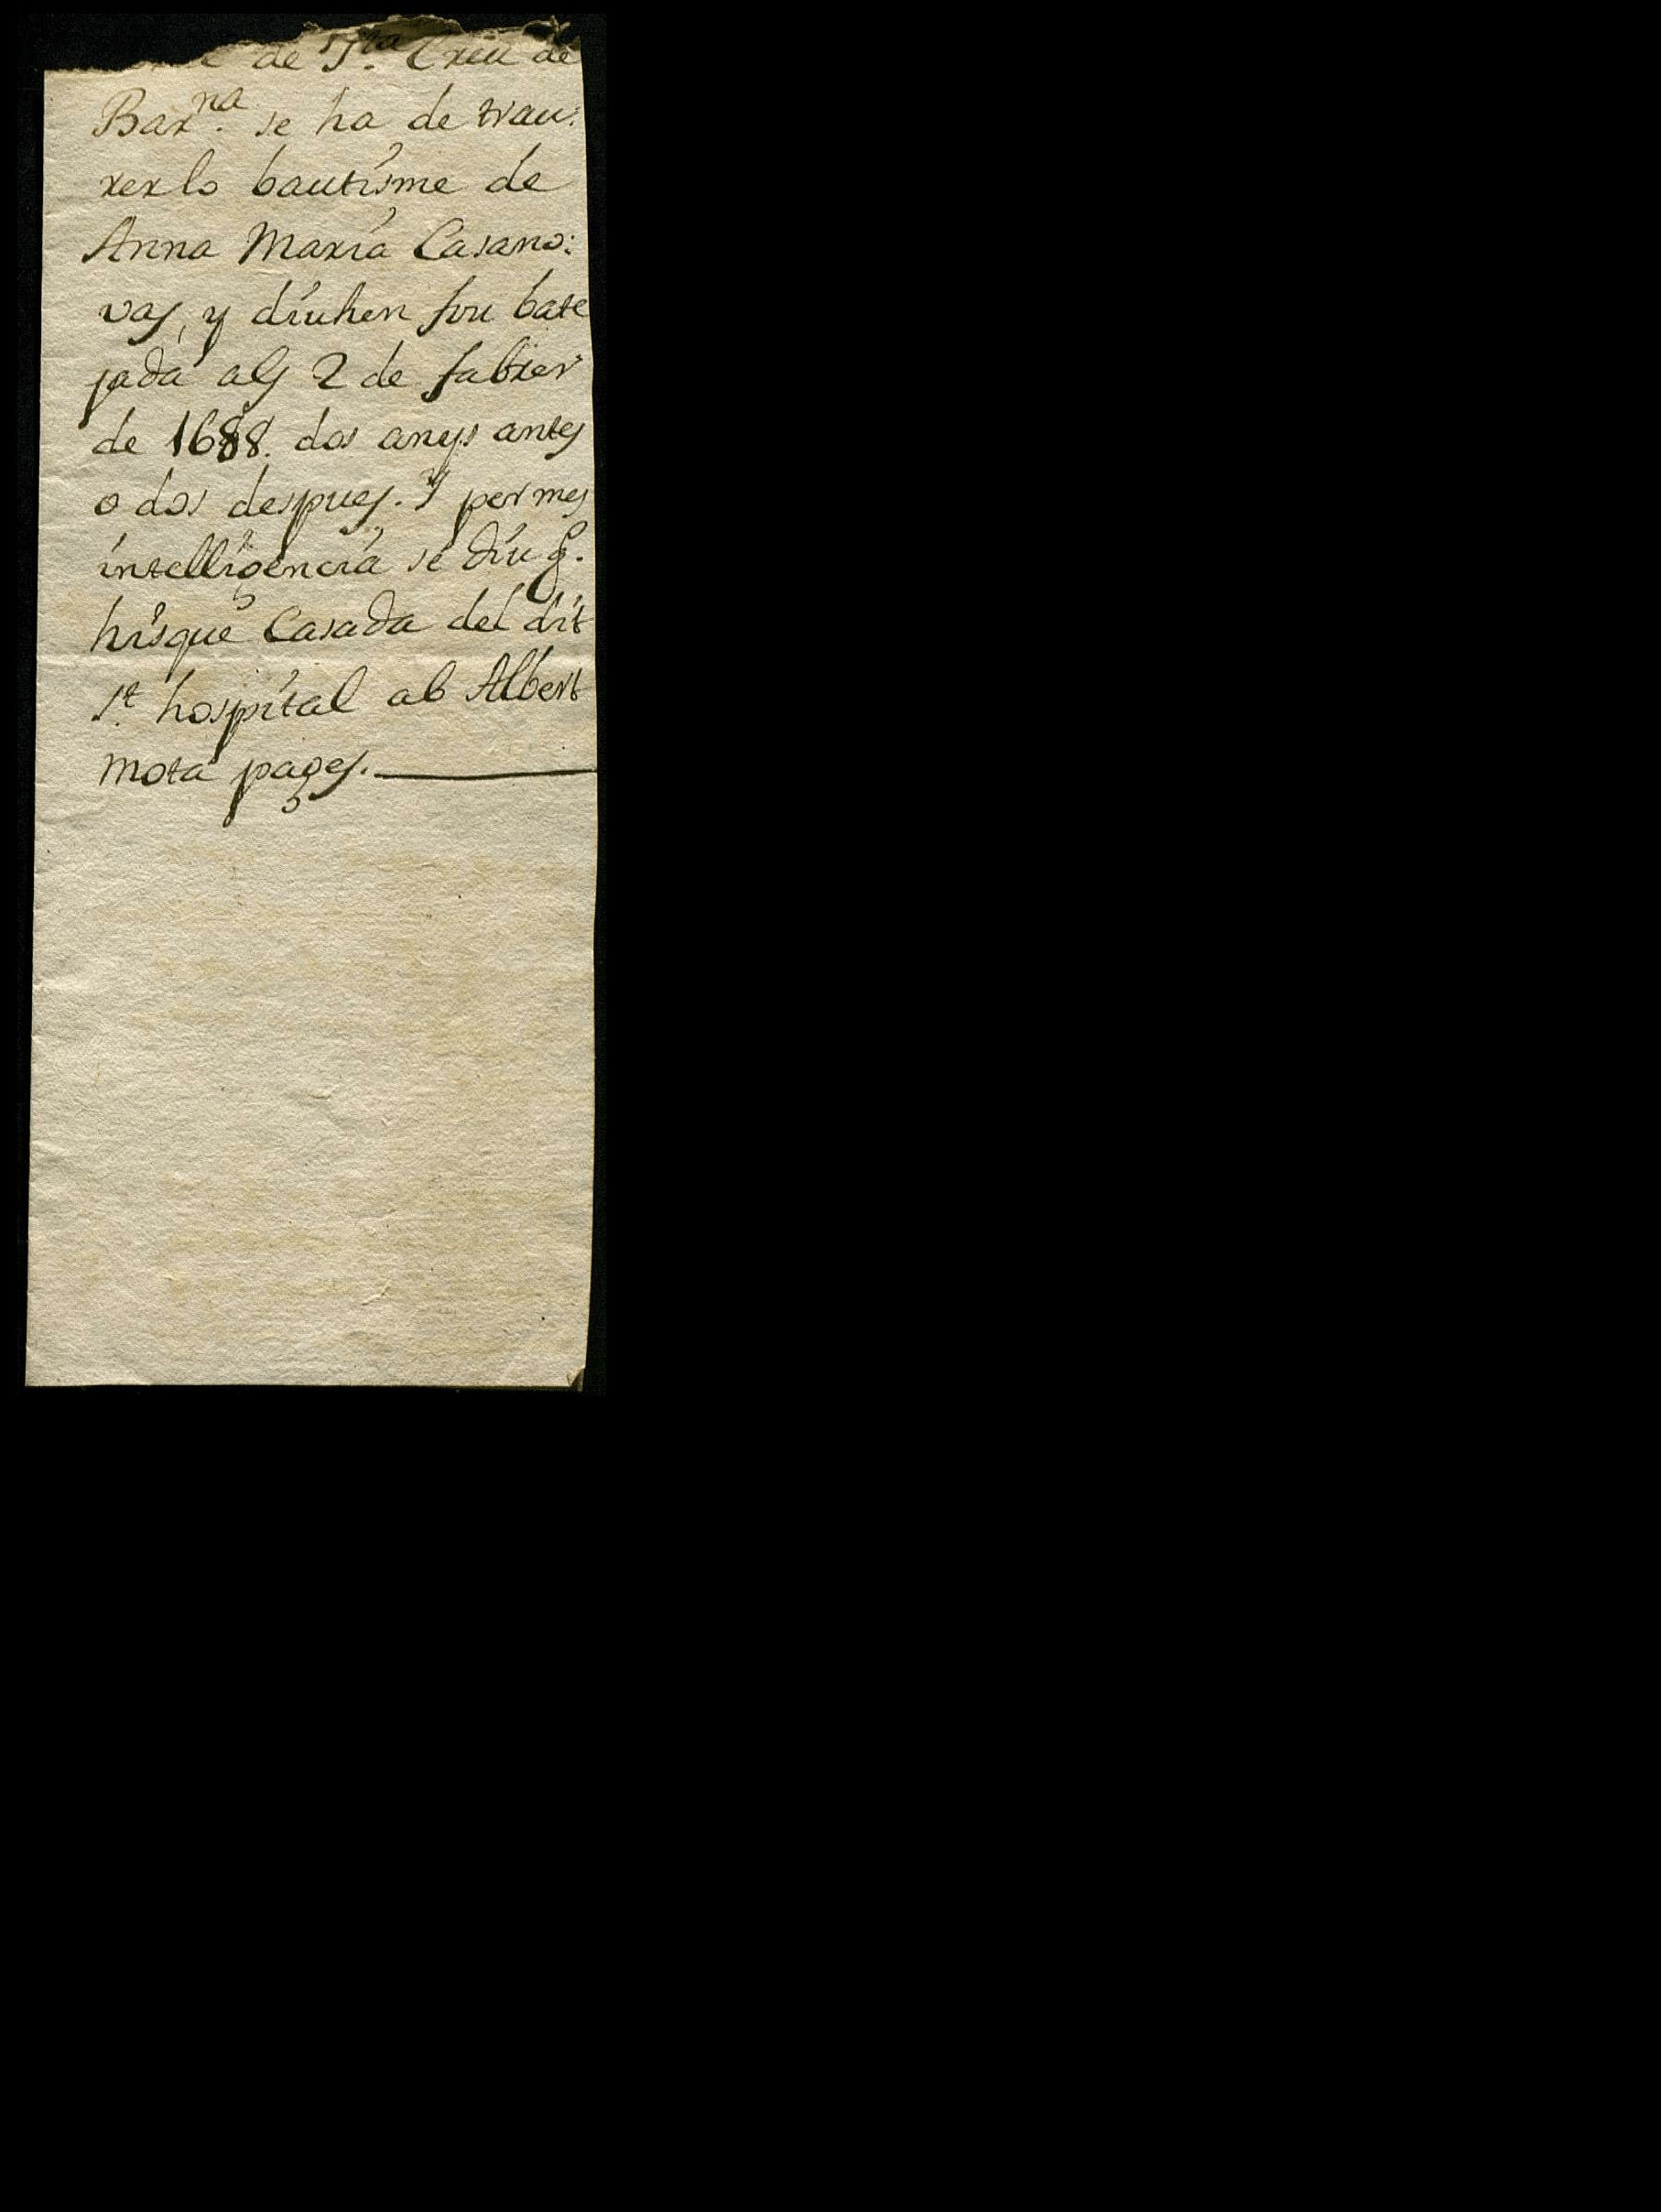 de Sta. Creu de
Barna. se ha de trau:
rer lo bautisme de
Anna Maria Casano:
vas, y diuhen fou bate
jada als 2 de fabrer
de 1688. dos anys antes
o dos despues. Y per mes
intelligencia se diu q.
hisque Casada del dit
St. hospital ab Albert
Mota pages.